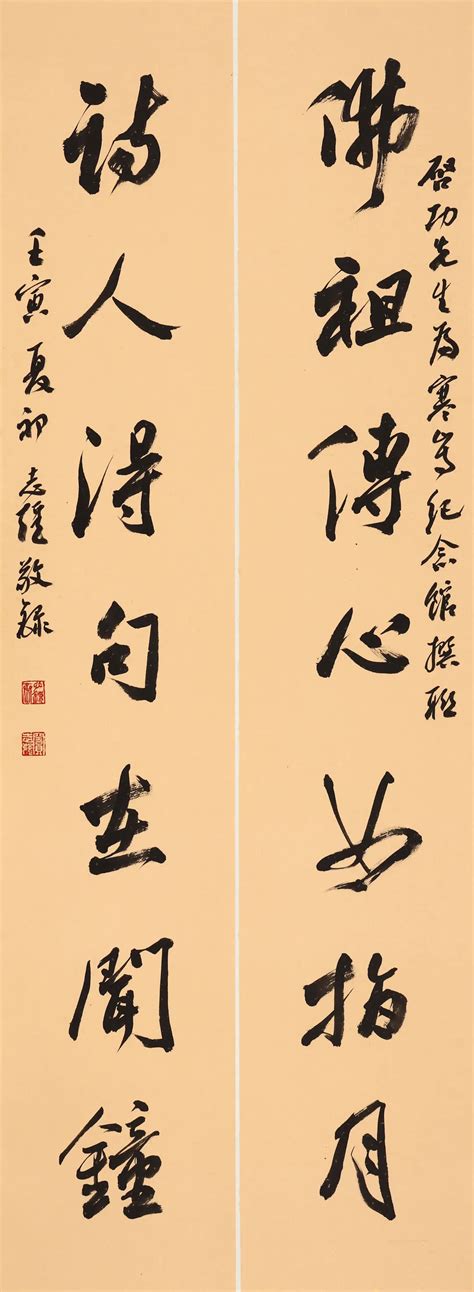 启功先生為寒紀念館撰聯
佛祖傳心如指月
詩人得句在聞鐘
壬寅夏初 志敬錄